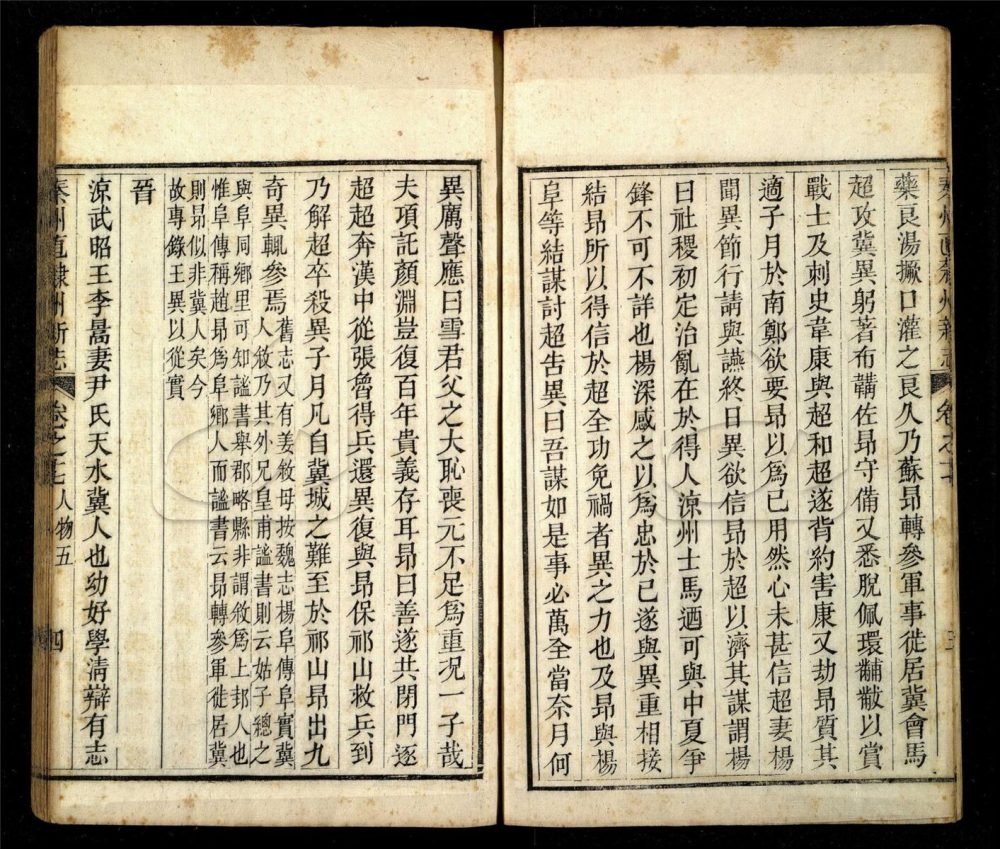 秦州直隸州新志 卷之十
藥良湯撅口灌之良久乃蘇昂轉參軍事徙居冀會馬
超攻冀異躬著布鞲佐昂守備又悉脫佩環黼黻以賞
戰士及刺史韋康與超和超遂背約害康又劫昂質其
適子月於南鄭欲要昂以爲已用然心未甚信超妻楊
聞異節行請與讌終日異欲信昂於超以濟其謀謂楊
曰社稷初定治亂在於得人涼州士馬迺可與中夏爭
鋒不可不詳也楊深感之以爲忠於已遂與異重相接
結昂所以得信於超全功免禍者異之力也及昂與楊
阜等結謀討超告異曰吾謀如是事必萬全當奈月何
異厲聲應曰雪君父之大恥喪元不足爲重况一子哉
夫項託顏淵豈復百年貴義存耳昂曰善遂共閉門逐
超超奔漢中從張魯得兵還異復與昂保祁山救兵到
乃解超卒殺異子月凡自冀城之難至於祁山昂出九
奇異輒參焉
舊志又有姜敘母按魏志楊阜傳阜實冀
人敘乃其外兄皇甫謐書則云姑子總之
與阜同鄉里可知謐書舉郡略縣非謂敘爲上邽人也
惟阜傳稱趙昂爲阜鄉人而謐書云昂轉參軍徙居冀
則昂似非冀人矣今
故專錄王異以從實
晉
涼武昭王李暠妻尹氏天水冀人也幼好學淸辯有志
秦州直隸州新志 卷之十七 人物五 四